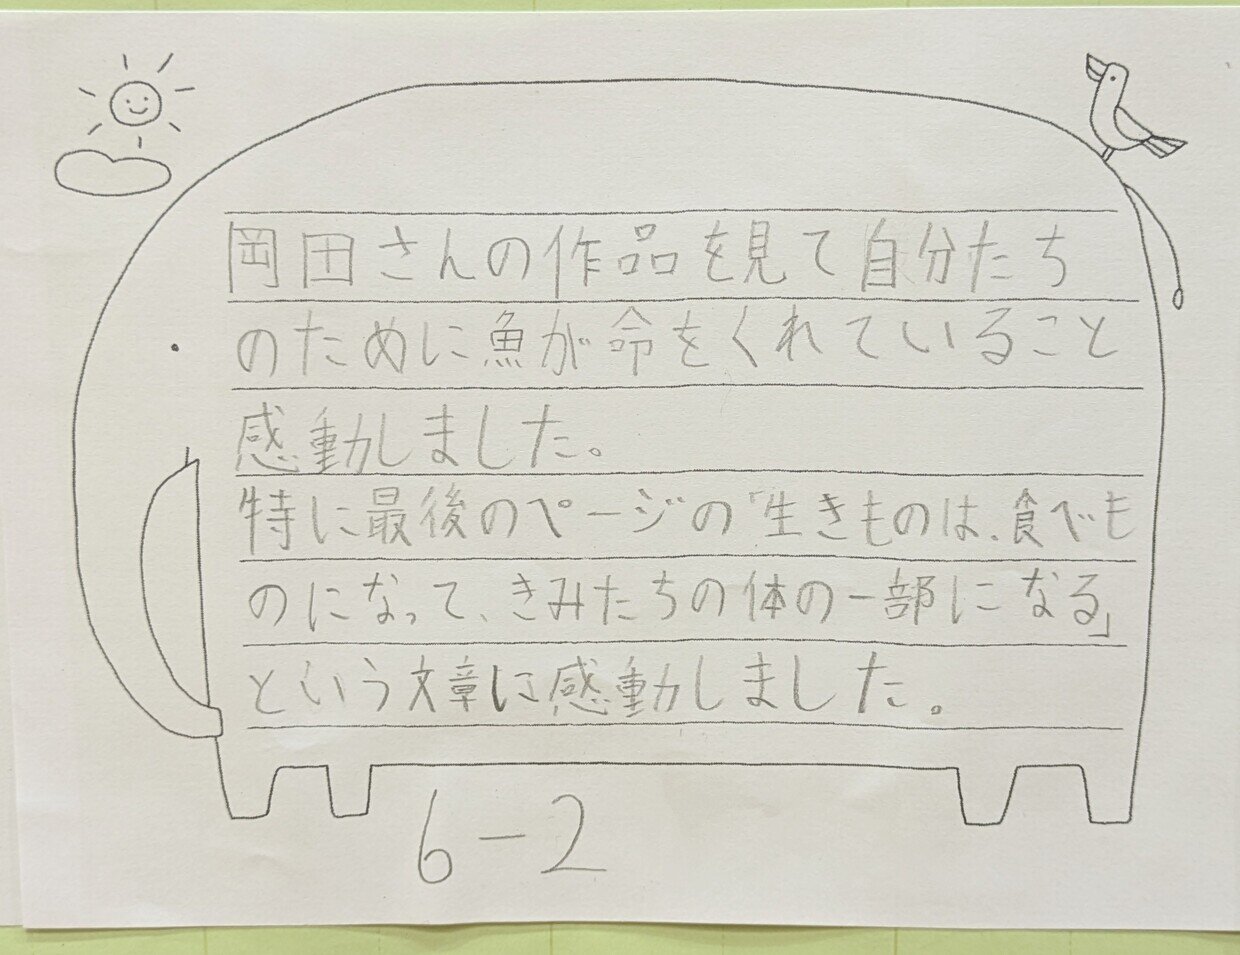 岡田さんの作品を見て自分たち
のために魚が命をくれていること
感動しました。
特に最後のページの「生きものは、食べも
のになって、きみたちの体の一部になる」
という文章に感動しました。
6-2